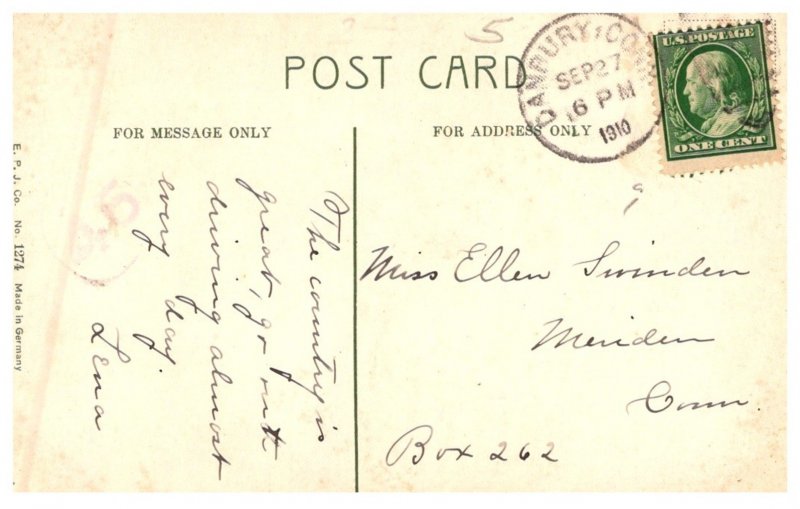 POST CARD
DANBURY, CONN
SEP 27
6 PM
1910
U.S. POSTAGE
ONE CENT
5
FOR MESSAGE ONLY
FOR ADDRESS ONLY
The country is
great, go out
driving almost
every day.
Lena
Miss Ellen Swinden
Meriden
Conn
Box 262
E. P. J. Co. No. 1274 Made in Germany